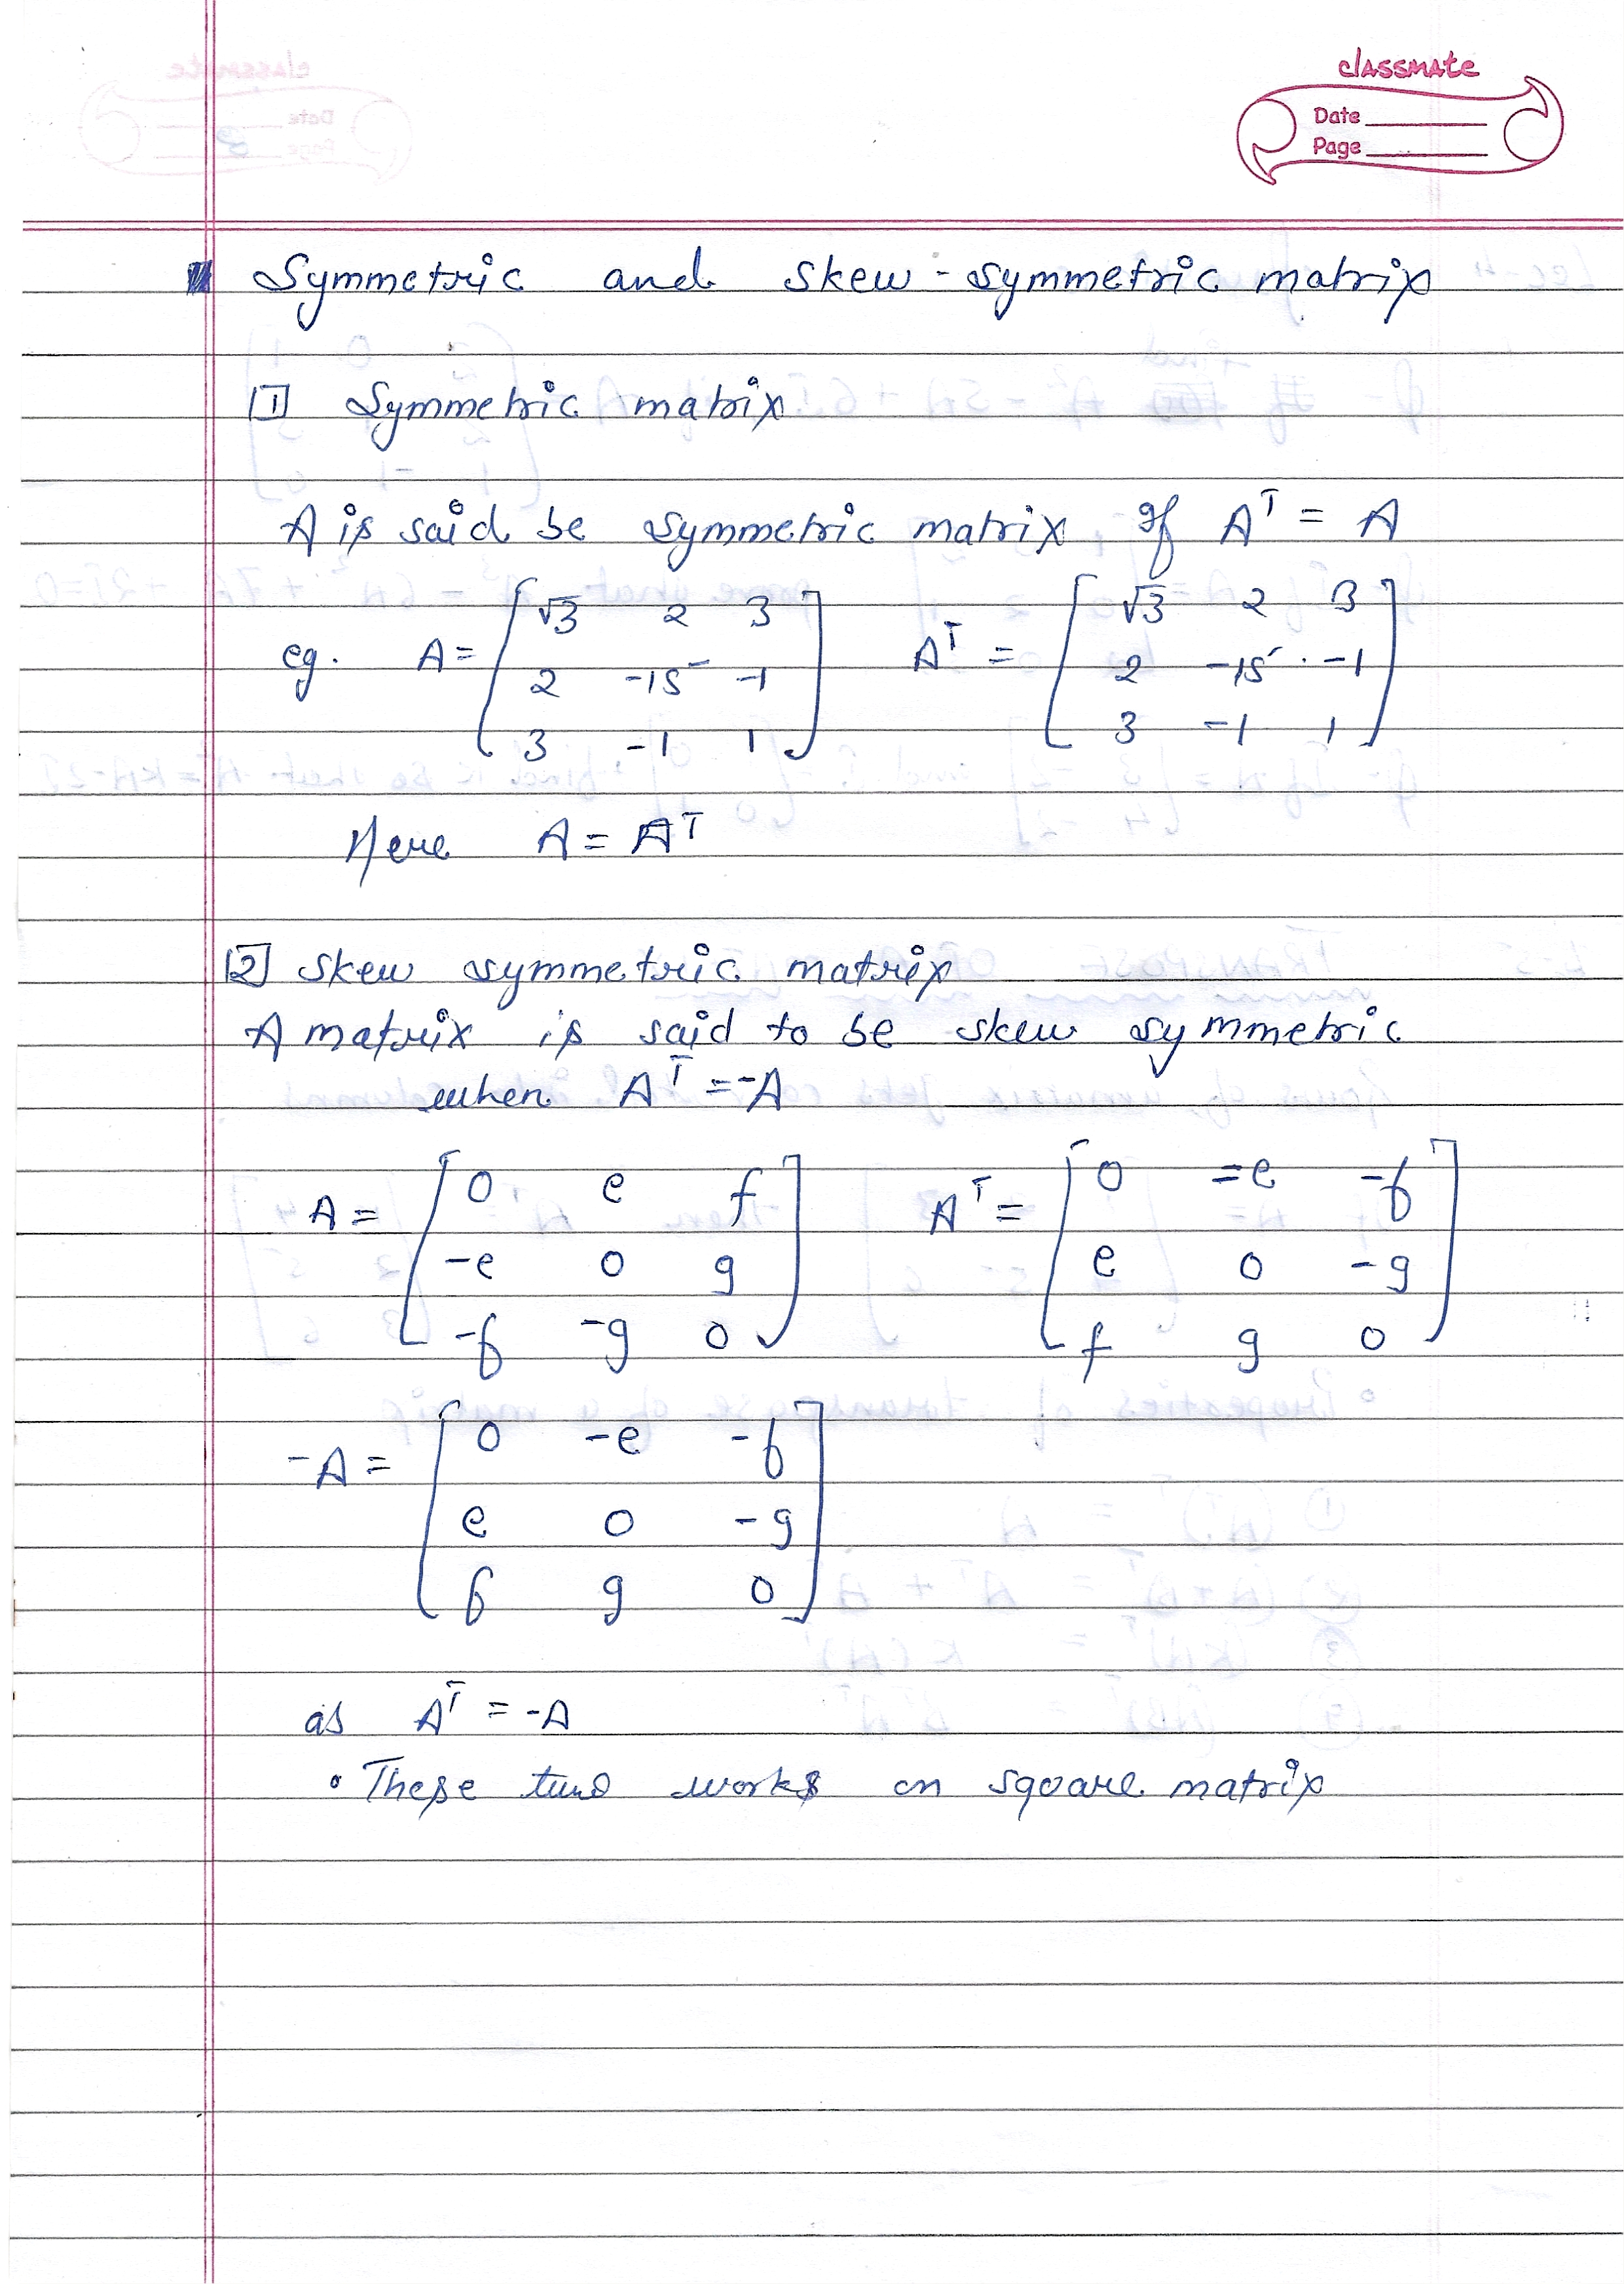 classmate
Date
Page
Symmetric and skew-symmetric matrix
1 Symmetric matrix
A is said be symmetric matrix if Aᵀ = A
eg. A = [√3 2 3 Aᵀ = [√3 2 3
2 -15 -1 2 -15 -1
3 -1 1] 3 -1 1]
Here A = Aᵀ
2 skew symmetric matrix
A matrix is said to be skew symmetric
when Aᵀ = -A
A = [0 e f Aᵀ = [0 -e -f
-e 0 g e 0 -g
-f -g 0] f g 0]
-A = [0 -e -f
e 0 -g
f g 0]
as Aᵀ = -A
• These two works on square matrix